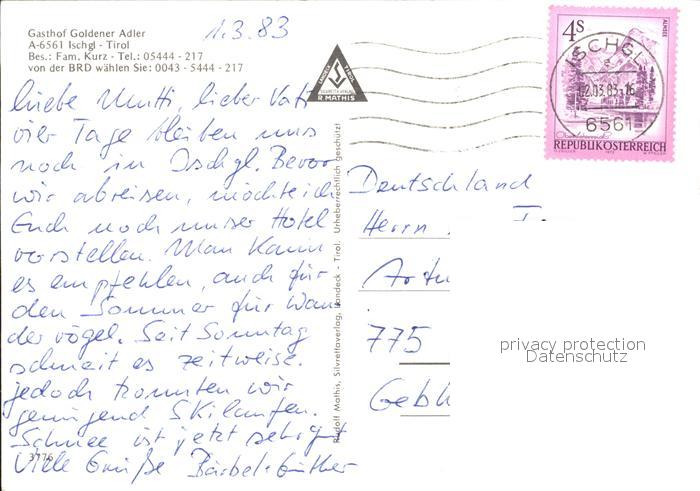 Gasthof Goldener Adler
A-6561 Ischgl - Tirol
Bes.: Fam. Kurz - Tel.: 05444 - 217
von der BRD wählen Sie: 0043 - 5444 - 217
1.3.83
liebe Mutti, lieber Vati
vier Tage bleiben uns
noch in Ischgl. Bevor
wir abreisen, möchte ich
Euch noch unser Hotel
vorstellen. Man kann
es empfehlen, auch für
den Sommer für Wan
dervögel. Seit Sonntag
schneit es zeitweise.
jedoch konnten wir
genügend Skilaufen.
Schnee ist jetzt sehr gut
Viele Grüße Bärbel + Günther
3776
R. MATHIS
Rudolf Mathis, Silvrettaverlag, Landeck - Tirol. Urheberrechtlich geschützt!
4S
ALMSEE
ISCHGL
2.03.83-16
6561
REPUBLIK ÖSTERREICH
Deutschland
Herrn
775
Gebh
privacy protection
Datenschutz